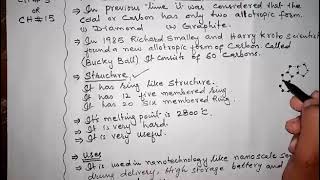 of
CH # 15
→ In previous time it was considered that the
Coal or Carbon has only two allotropic form.
(i) Diamond (ii) Graphite.
→ In 1985 Richard Smalley and Harry Kroto Scientist
found a new allotropic form of Carbon. Called
(Bucky Ball) It consists of 60 Carbons.
→ Structure
It has ring like Structure.
It has 12 five membered ring
It has 20 Six membered Ring.
→ It's melting point is 2800°C.
→ It is very hard.
→ It is very useful.
→ Uses
→ It is used in nanotechnology like nanoscale
drug delivery, High storage battery and